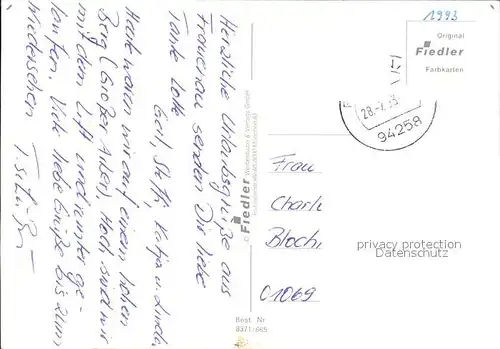 Herzliche Urlaubsgrüße aus
Frauenau senden Dir liebe
Tante Lotte
Steffi, Katja u. Linda
Heute waren wir auf einem hohen
Berg (Großer Arber). Hoch sind wir
mit dem Lift und runter ge-
laufen. Viele liebe Grüße bis zum
Wiedersehen
1993
Original
Fiedler
Farbkarten
28.-7.93
94258
© Fiedler
Best. Nr
8371/665
Frau
Charl
Bloch
01069
privacy protection
Datenschutz